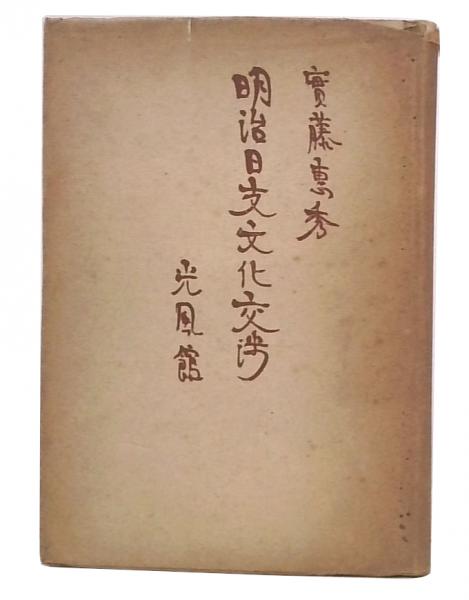 實藤惠秀
明治日支文化交渉
光風館